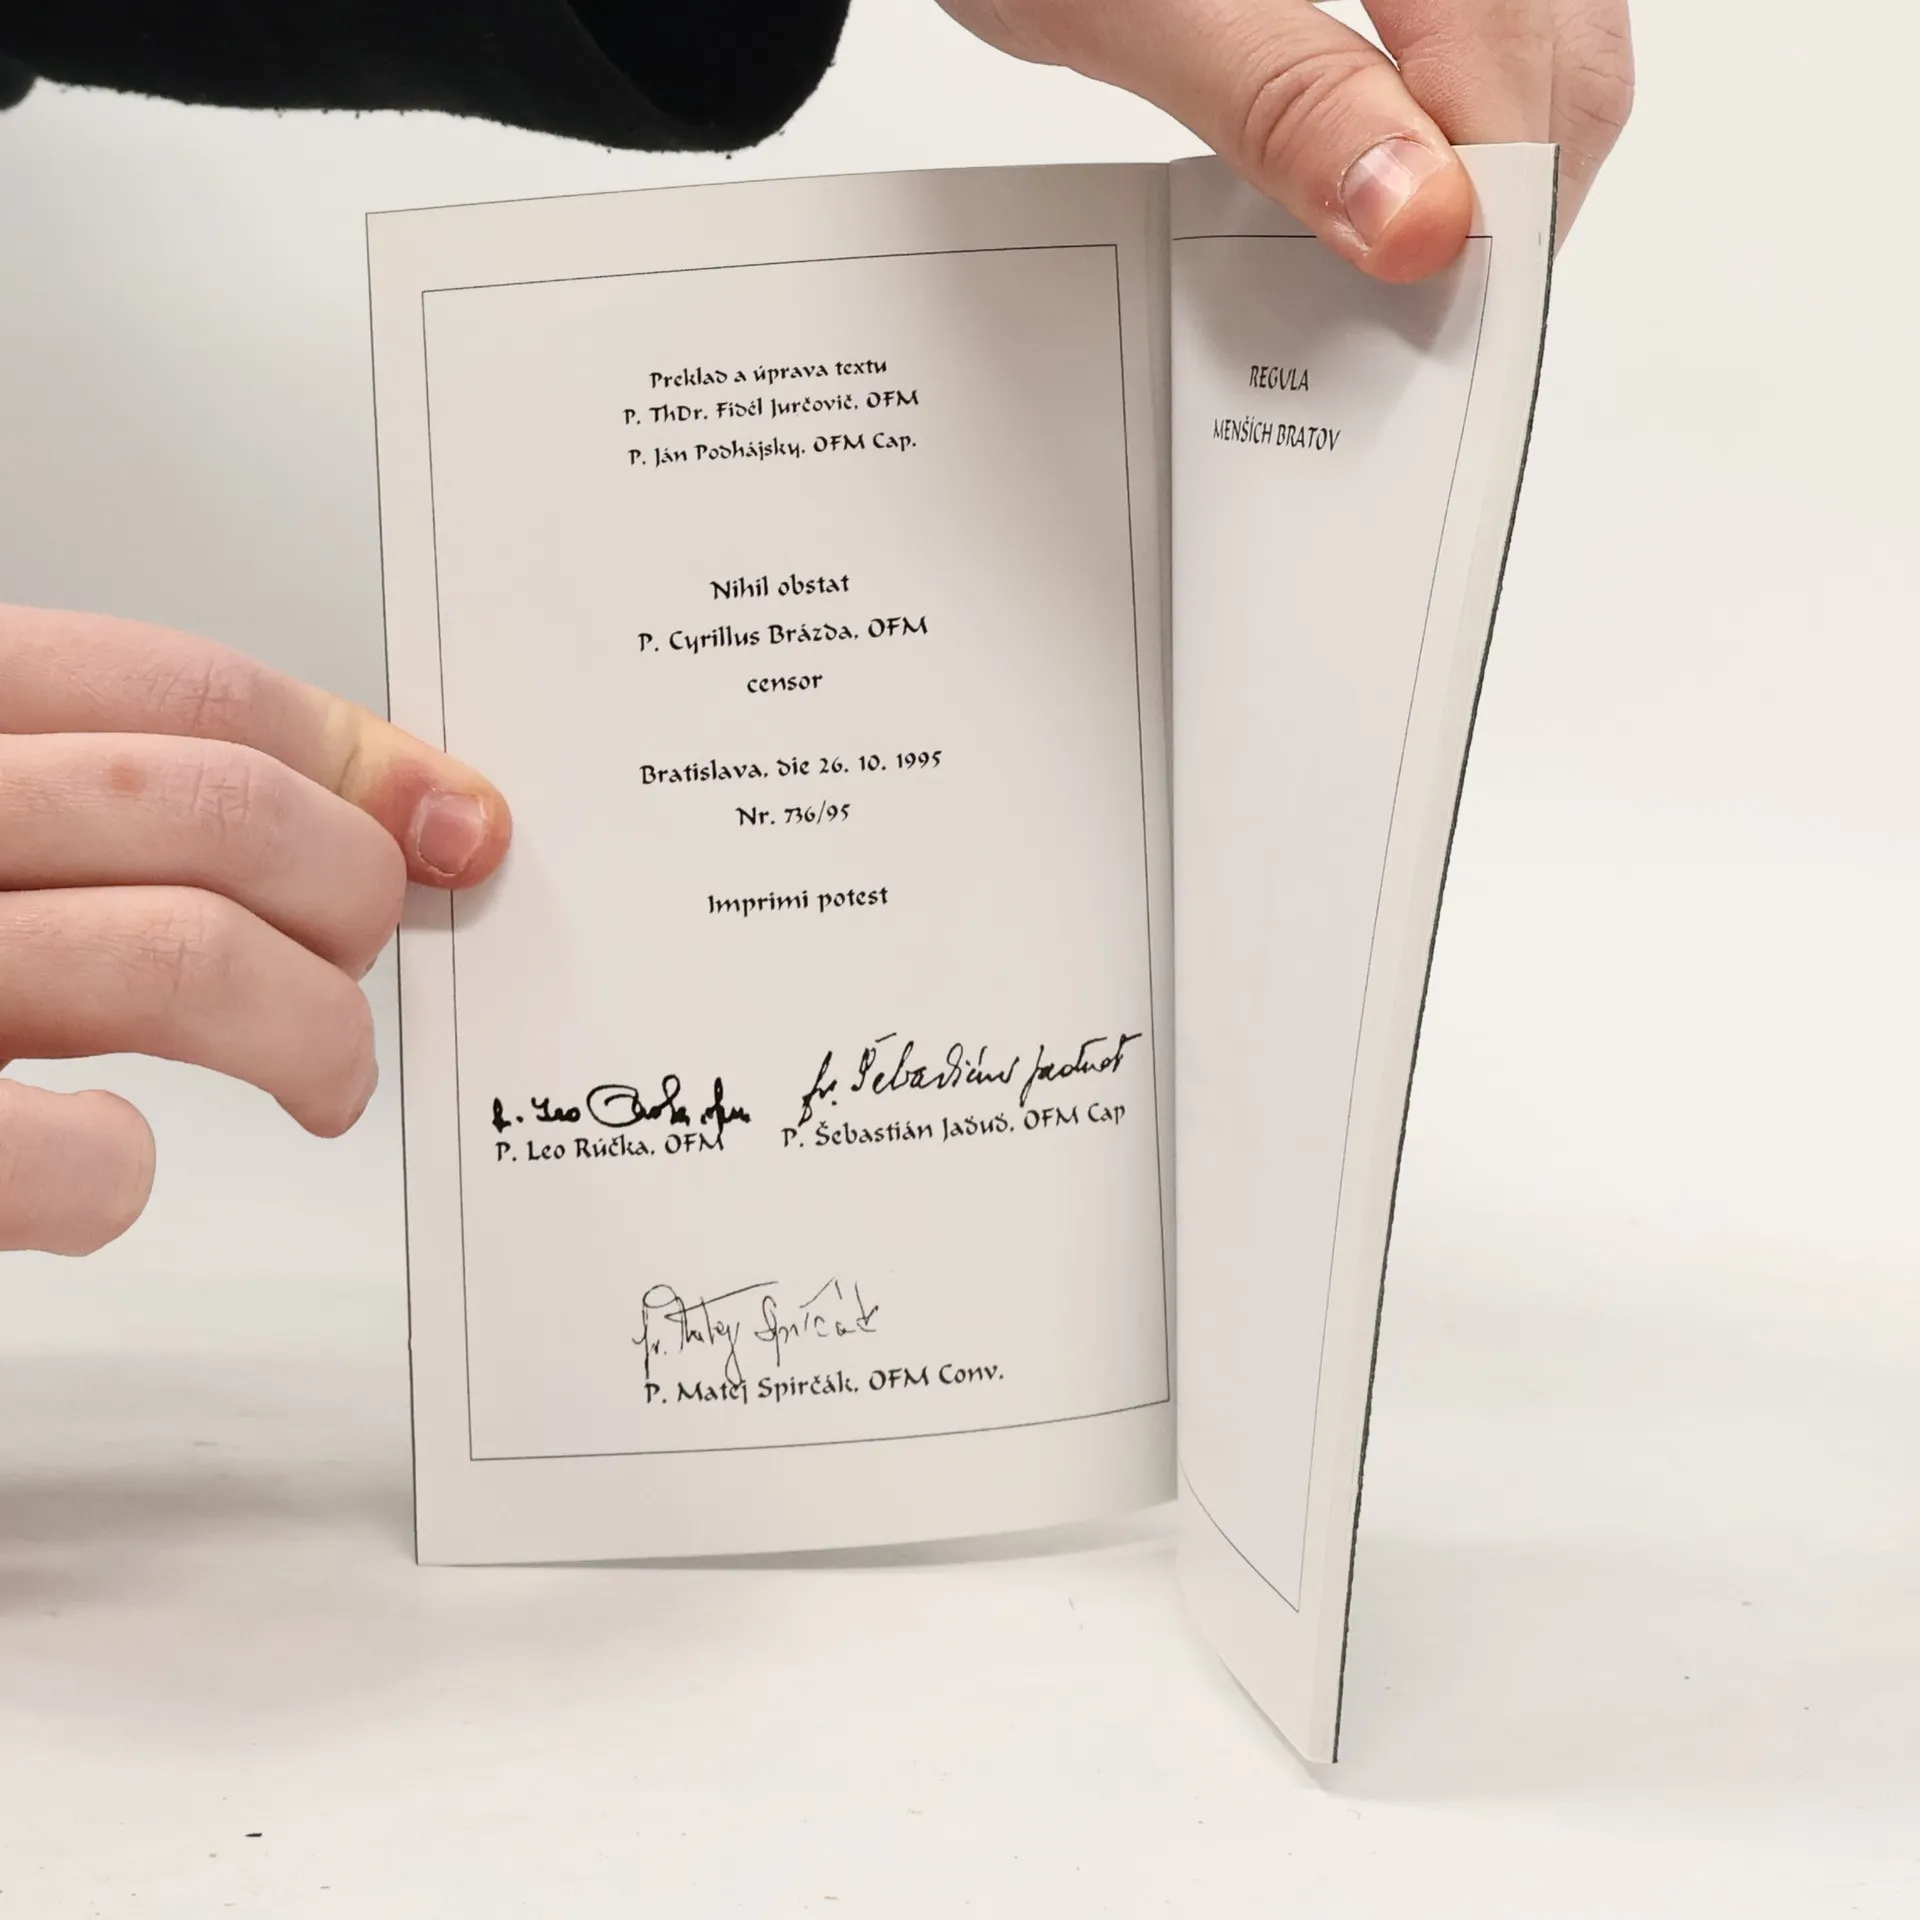 Preklad a úprava textu
P. ThDr. Fidél Jurčovič, OFM
P. Ján Podhájsky, OFM Cap.
Nihil obstat
P. Cyrillus Brázda, OFM
censor
Bratislava, die 26. 10. 1995
Nr. 736/95
Imprimi potest
fr. Leo Rúčka ofm
fr. Šebastián Jaduď
P. Leo Rúčka, OFM
P. Šebastián Jaďuď, OFM Cap
fr. Matej Spirčák
P. Matej Spirčák, OFM Conv.
REGULA
MENŠÍCH BRATOV